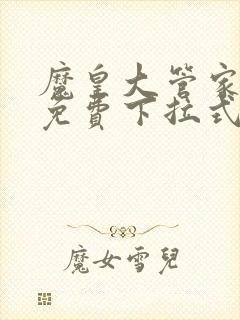 魔皇大管家
免費下拉式
魔女雪兒